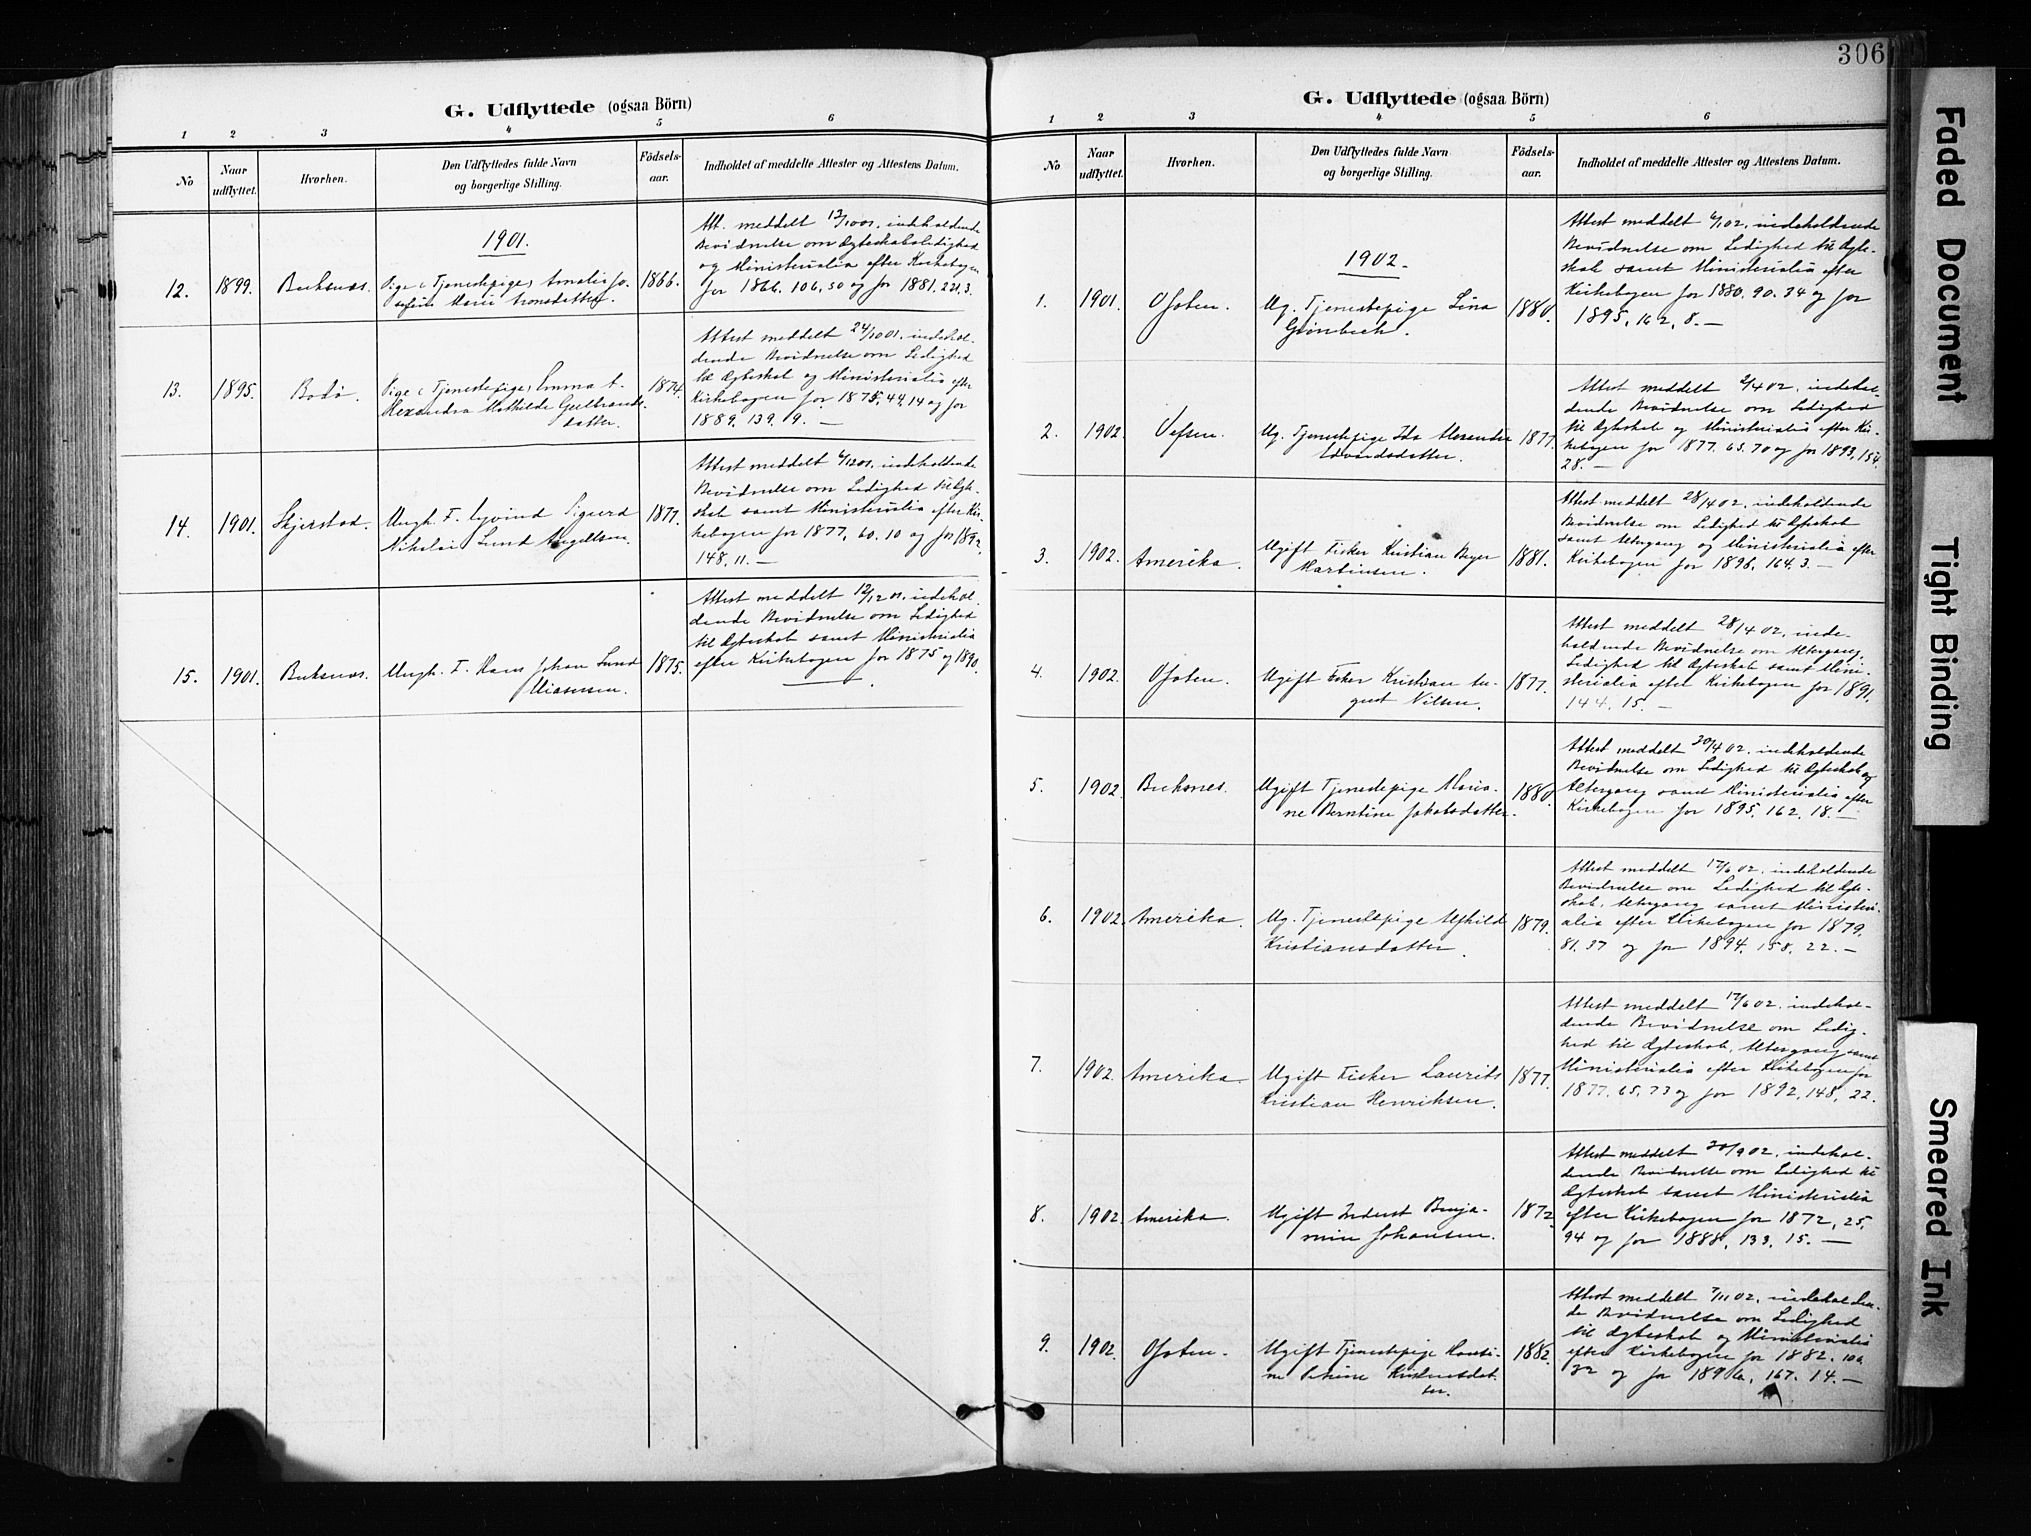 306
G. Udflyttede (ogsaa Börn)
1 2 3 4 5 6
No
Naar udflyttet.
Hvorhen.
Den Udflyttedes fulde Navn
og borgerlige Stilling.
Födsels-
aar.
Indholdet af meddelte Attester og Attestens Datum.
1901.
12. 1899. Buksnæs. Pige (Tjenestepige) Amalie Jo-
sefine Marie 1866.
Att. meddelt 12/10 01, indeholdende
Bevidnelse om Ægteskabsledighed
og Ministerialia efter Kirkebogen
for 1866. 106, 50 og for 1881. 221, 3.
13. 1895. Bodø. Pige (Tjenestepige) Emma A-
lexandra Mathilde Gulbrands-
datter. 1874.
Attest meddelt 24/10 01, indehol-
dende Bevidnelse om Ledighed
til Ægteskab og Ministerialia efter
Kirkebogen for 1875, 44, 14 og for
1889. 139. 19. —
14. 1901. Skjerstad. Ungk. F. Eyvind Sigurd
Nikolai Lund Angellsen. 1877.
Attest meddelt 6/12 01, indeholdende
Bevidnelse om Ledighed til Ægte-
skab samt Ministerialia efter Kir-
kebogen for 1877, 60, 10 og for 1892,
148, 11. —
15. 1901. Buksnæs. Ungk. F. Hans Johan Lund
1875.
Attest meddelt 12/12 01, indehol-
dende Bevidnelse om Ledighed
til Ægteskab samt Ministerialia
efter Kirkebogen for 1875 og 1890.
G. Udflyttede (ogsaa Börn)
1 2 3 4 5 6
No
Naar
udflyttet.
Hvorhen.
Den Udflyttedes fulde Navn
og borgerlige Stilling.
Födsels-
aar.
Indholdet af meddelte Attester og Attestens Datum.
1902.
1. 1901. Ofoten. Ug. Tjenestepige Lina
Grønbech. 1880.
Attest meddelt 6/1 02, indeholdende
Bevidnelse om Ledighed til Ægte-
skab samt Ministerialia efter
Kirkebogen for 1880. 90. 34 og for
1895, 162, 8. —
2. 1902. Vefsen. Ug. Tjenestepige Ida Alexandra
Edvardsdatter. 1877.
Attest meddelt 2/4 02, indehol-
dende Bevidnelse om Ledighed
til Ægteskab og Ministerialia efter Kir-
kebogen for 1877. 65. 70 og for 1893, 154,
28. —
3. 1902. Amerika. Ugift Fisker Kristian Beyer
Martinsen. 1881.
Attest meddelt 28/4 02, indeholdende
Bevidnelse om Ledighed til Ægteskab
samt Altergang og Ministerialia efter
Kirkebogen for 1896, 164. 3. —
4. 1902. Ofoten. Ugift Fisker Kristian Au-
gust Nilsen. 1877.
Attest meddelt 28/4 02, inde-
holdende Bevidnelse om Altergang,
Ledighed til Ægteskab samt Mini-
sterialia efter Kirkebogen for 1891,
144, 15. —
5. 1902. Buksnes. Ugift Tjenestepige Maria-
ne Berntine Jakobsdatter. 1880.
Attest meddelt 30/4 02, indeholdende
Bevidnelse om Ledighed til Ægteskab og
Altergang samt Ministerialia efter
Kirkebogen for 1895, 162, 18. —
6. 1902. Amerika. Ug. Tjenestepige Alfhild
Kristiansdatter. 1879.
Attest meddelt 17/6 02, indeholdende
Bevidnelse om Ledighed til Ægte-
skab, Altergang samt Ministeri-
alia efter Kirkebogen for 1879,
81. 37 og for 1894. 158. 22. —
7. 1902. Amerika. Ugift Fisker Laurits
Kristian Henriksen. 1877.
Attest meddelt 17/6 02, indehol-
dende Bevidnelse om Ledig-
hed til Ægteskab, Altergang samt
Ministerialia efter Kirkebogen for
1877. 65, 73 og for 1892, 148, 22.
8. 1902. Amerika. Ugift Inderst Benja-
min Johansen. 1872.
Attest meddelt 30/9 02, indehol-
dende Bevidnelse om Ledighed til
Ægteskab samt Ministerialia
efter Kirkebogen for 1872, 25,
94 og for 1888, 133, 15. —
9. 1902. Ofoten. Ugift Tjenestepige Hansi-
ne 1882.
Attest meddelt 7/11 02, indeholden-
de Bevidnelse om Ledighed
til Ægteskab og Ministerialia
efter Kirkebogen for 1882. 100,
32 og for 1896, 167. 14. —
Faded Document
Tight Binding
Smeared Ink